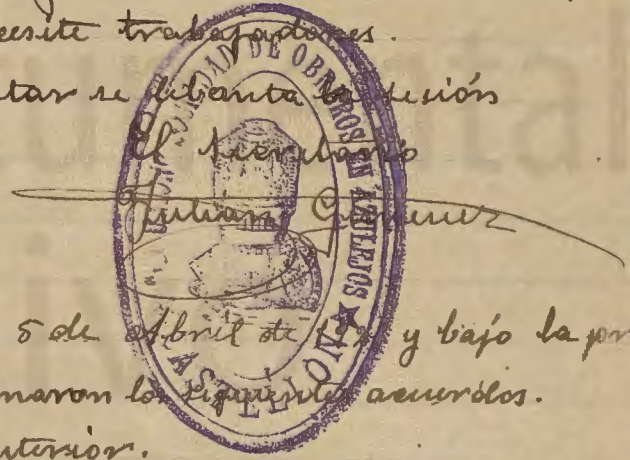 cesite trabajadores.
tar se lebanta la sesión
El Secretario
Julián Gimenez
SOCIEDAD DE OBREROS EN AZULEJOS ★
CASTELLON
5 de Abril de y bajo la pr
maron los siguientes acuerdos.
nterior.